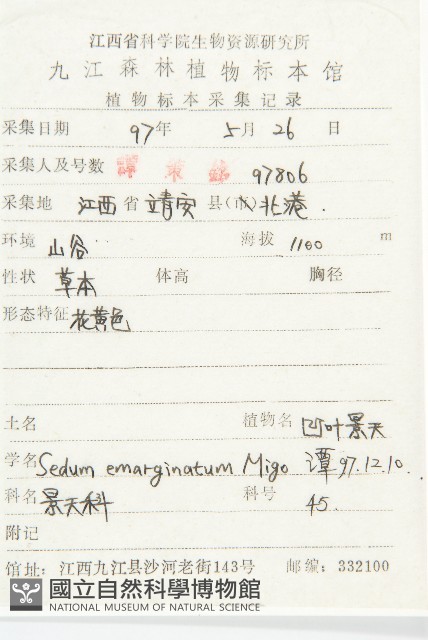 江西省科学院生物资源研究所
九江森林植物标本馆
植物标本采集记录
采集日期 97年 5月 26 日
采集人及号数 譚策銘 97806
采集地 江西省靖安县(市)北港.
环境 山谷 海拔 1100 m
性状 草本 体高 胸径
形态特征 花黄色
土名 植物名 凹叶景天
学名 Sedum emarginatum Migo 谭 97.12.10.
科名 景天科 科号 45.
附记
馆址: 江西九江县沙河老街143号 邮编: 332100
國立自然科學博物館
NATIONAL MUSEUM OF NATURAL SCIENCE